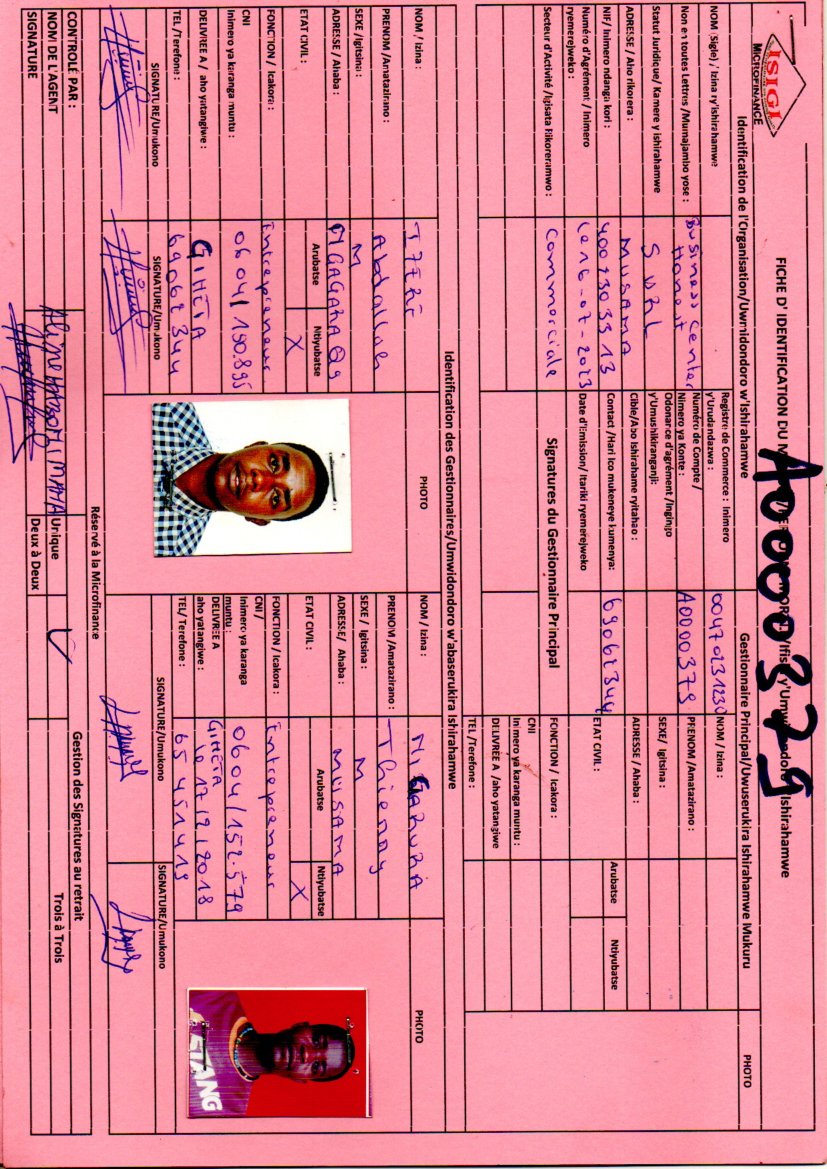 ISIGI
MICROFINANCE
FICHE D' IDENTIFICATION DU
A0000379
Ishirahamwe
Identification de l'Organisation/Uwmidondoro w'Ishirahamwe
Gestionnaire Principal/Uwuserukira Ishirahamwe Mukuru
PHOTO
NOM (Sigle) / Izina ry'ishirahamwe
Non en toutes Lettres /Mumajambo yose :
Business Center
Honest
Statut Juridique/ Kamere y ishirahamwe
SURL
ADRESSE / Aho rikorera :
MUSAMA
NIF/ Inimero ndanga kori :
4002303313
Numéro d'Agrément / Inimero
ryemerejweko :
Le 16-07-2023
Secteur d'Activité /Igisata Rikoreramwo :
Commerciale
Registre de Commerce : Inimero
y'Urudandazwa :
Numéro de Compte /
Nimero ya Konte :
A0000379
Odonance d'agrément /Ingingo
y'Umushikiranganji:
Cible/Abo Ishirahame ryitaho :
Contact /Hari Ico mukeneye kumenya:
69062344
Date d'Emission/ Itariki ryemerejweko
Signatures du Gestionnaire Principal
NOM / Izina :
PRENOM /Amatazirano :
SEXE/ Igitsina :
ADRESSE / Ahaba :
ETAT CIVIL :
Arubatse
Ntiyubatse
FONCTION / Icakora :
CNI
Inimero ya karanga muntu :
DELIVREE A /aho yatangiwe
TEL /Terefone :
Identification des Gestionnaires/Umwidondoro w'abaserukira Ishirahamwe
NOM / Izina :
PRENOM /Amatazirano :
Abdallah
SEXE /Igitsina :
M
ADRESSE / Ahaba :
NGAGARA Q9
ETAT CIVIL :
Arubatse
Ntiyubatse
X
FONCTION / Icakora :
Entrepreneur
CNI
Inimero ya karanga muntu :
0604/150.895
DELIVREE A / aho yatangiwe :
GIHETA
TEL /Terefone :
69062344
SIGNATURE/Umukono
SIGNATURE/Umukono
PHOTO
NOM / Izina :
NIGARURA
PRENOM /Amatazirano :
Thierry
SEXE / Igitsina :
M
ADRESSE/ Ahaba :
MUSAMA
ETAT CIVIL :
Arubatse
Ntiyubatse
X
FONCTION / Icakora :
Entrepreneur
CNI /
Inimero ya karanga
muntu :
0604/152.579
DELIVREE A
aho yatangiwe :
GIHETA
le 12/12/2018
TEL/ Terefone :
65451419
SIGNATURE/Umukono
SIGNATURE/Umukono
PHOTO
Réservé à la Microfinance
CONTROLÉ PAR :
Gestion des Signatures au retrait
NOM DE L'AGENT
Unique
Trois à Trois
SIGNATURE
Deux à Deux